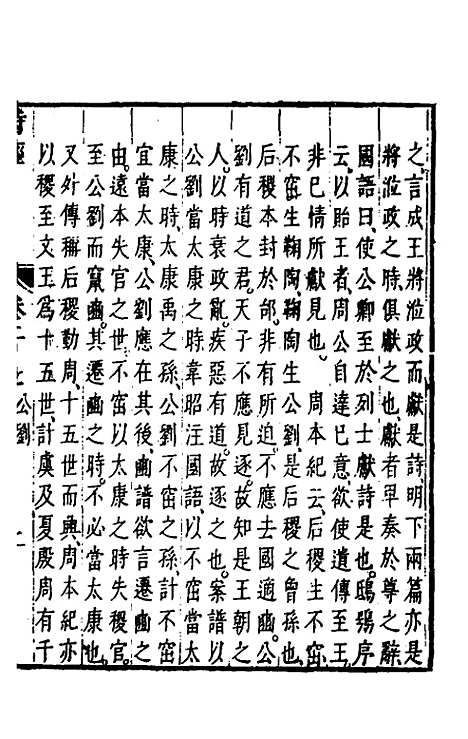 之言成王將涖政而獻是詩明下兩篇亦是
將涖政之時俱獻之也獻者卑奏於尊之辭
國語曰使公卿至於列士獻詩是也鴟鴞序
云以貽王者周公自達已意欲使遺傳至王
非已情所獻見也　周本紀云后稷生不窋
不窋生鞠陶鞠陶生公劉是后稷之曾孫也
后稷本封於邰非有所迫不應去國適豳公
劉有道之君天子不應見逐故知是王朝之
人以時衰政亂疾惡有道故逐之也案譜以
公劉當太康之時韋昭注國語以不窋當太
康之時太康禹之孫公劉不窋之孫計不窋
宜當太康公劉應在其後豳譜欲言遷豳之
由遠本失官之世不窋以太康之時失稷官
至公劉而竄豳其遷豳之時不必當太康也
又外傳稱后稷勤周十五世而興周本紀亦
以稷至文王爲十五世計虞及夏殷周有千
詩經　卷二十七公劉